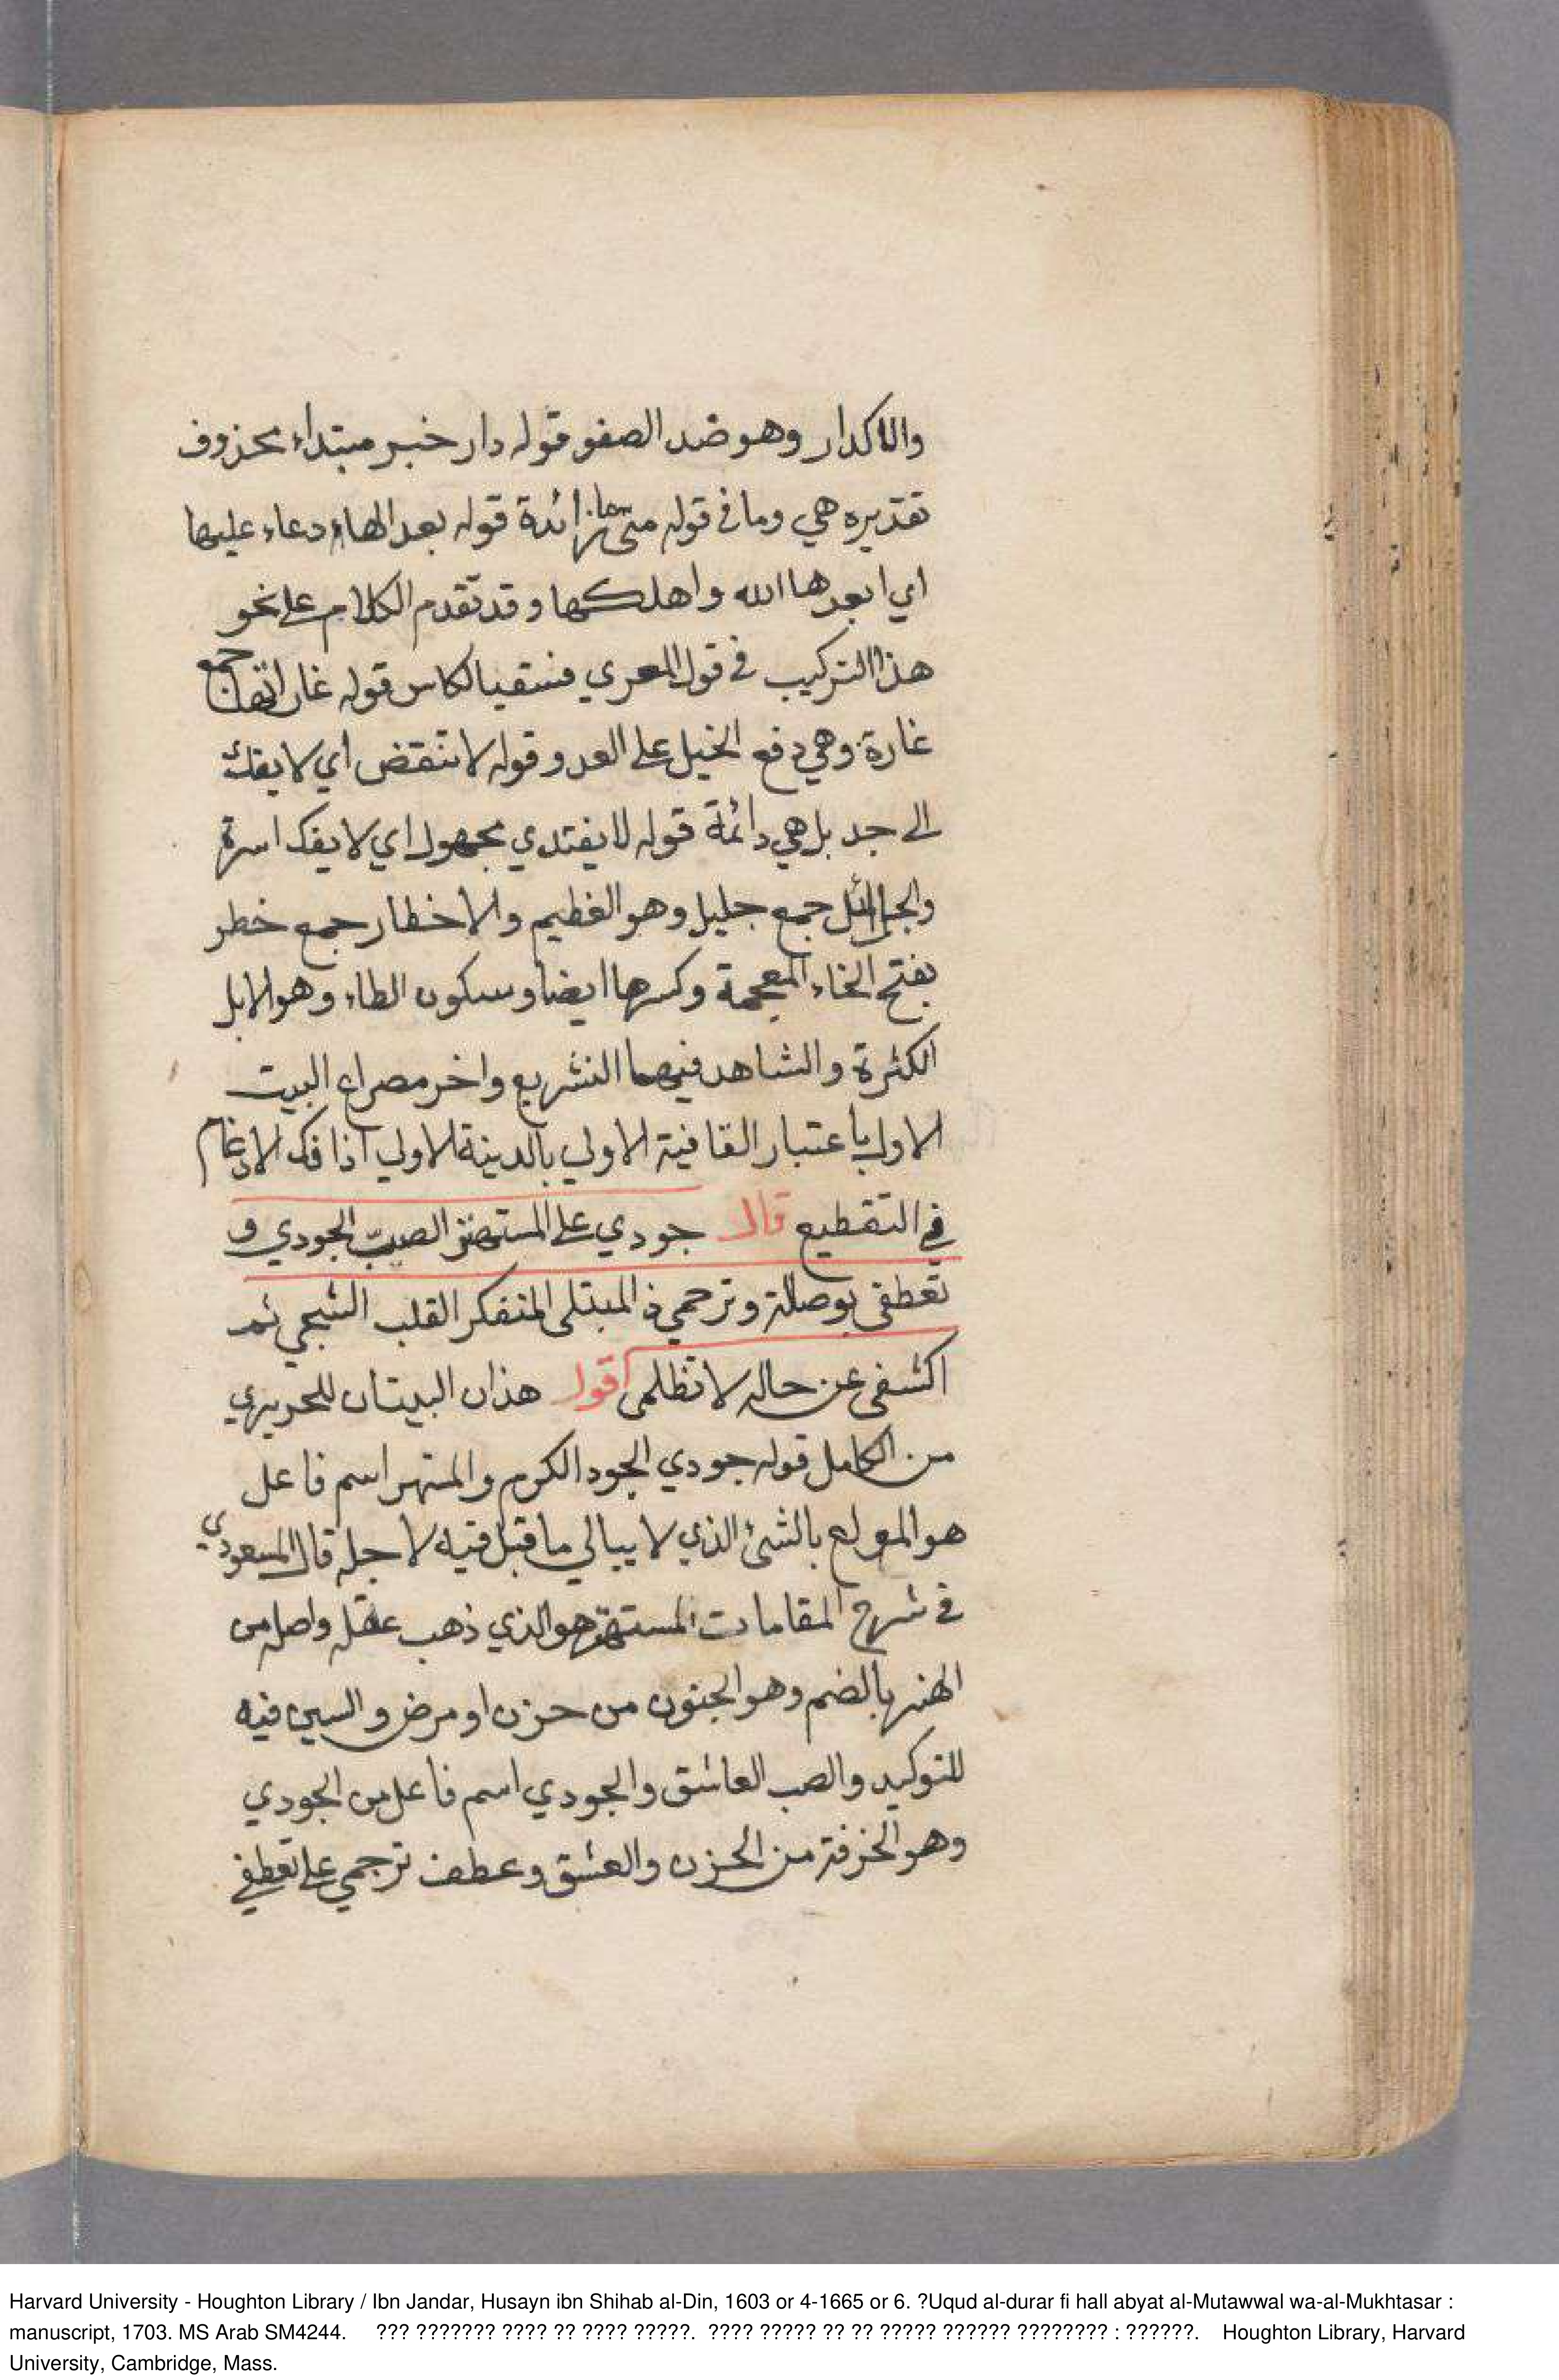 والاكدار وهو ضد الصفو قوله دار خبر مبتداء محزوف
تقديره هي وما في قوله متى ما زائدة قوله بعدا لها دعاء عليها
اي ابعدها الله واهلكها وقد تقدم الكلام على نحو
هذا التركيب في قول المعري فسقيا لكاس قوله غاراتها جمع
غارة وهي دفع الخيل على العدو قوله لا تنقض اي لا يفك
الى حد بل هي دائمة قوله لا يفتدي مجهول اي لا يفك اسرة
والجلائل جمع جليل وهو العظيم والاخطار جمع خطر
بفتح الخاء المعجمة وكسرها ايضا وسكون الطاء وهو الابل
الكثرة والشاهد فيهما التشريع واخر مصراع البيت
الاول باعتبار القافية الاولى بالدينة الاولي اذا فك الادغام
في التقطيع قال جودي على المستهتر الصب الجودي و
تعطفى بوصالة وترحمي ذ المبتلى المتفكر القلب الشجي ثم
اكشفى عن حاله لا تظلمى اقول هذان البيتان للحريري
من الكامل قوله جودي الجود الكرم والمتهر اسم فاعل
هو المولع بالشئ الذي لا يبالي ما قبل فيه لاجله قال المسعودي
في شرح المقامات المستهتر هو الذي ذهب عقله واصله من
الهتر بالضم وهو الجنون من حزن او مرض والسين فيه
للتوكيد والصب العاشق والجودي اسم فاعل من الجودي
وهو الخرفة من الحزن والعشق وعطف ترجمي على تعطفي
Harvard University - Houghton Library / Ibn Jandar, Husayn ibn Shihab al-Din, 1603 or 4-1665 or 6. ?Uqud al-durar fi hall abyat al-Mutawwal wa-al-Mukhtasar :
manuscript, 1703. MS Arab SM4244. ??? ??????? ???? ?? ???? ?????. ???? ????? ?? ?? ????? ?????? ???????? : ??????. Houghton Library, Harvard
University, Cambridge, Mass.